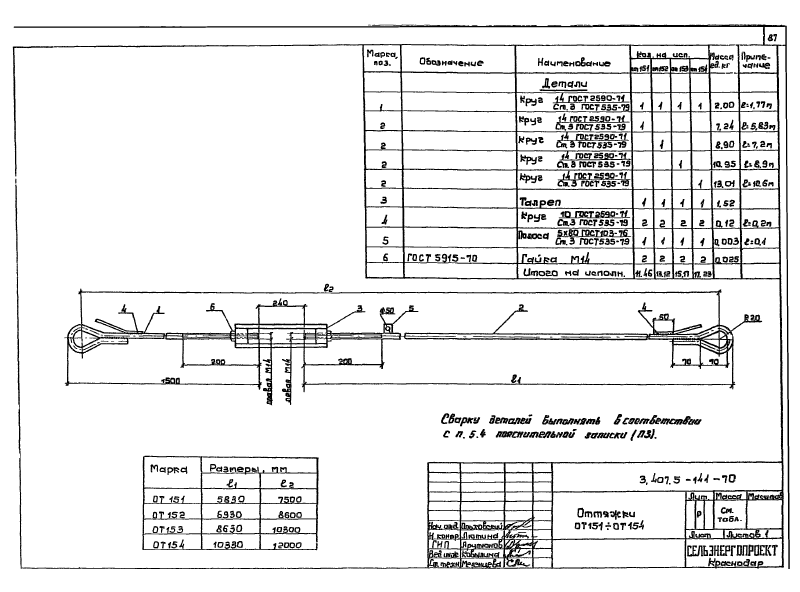 87
Марка, поз. Обозначение Наименование Кол. на исп. Масса ед. кг Приме-чание
от151 от152 от153 от154
Детали
1 Круг 14 ГОСТ 2590-71 / Ст.3 ГОСТ 535-79 1 1 1 1 2,00 ℓ=1,77м
2 Круг 14 ГОСТ 2590-71 / Ст.3 ГОСТ 535-79 1 7,24 ℓ=5,83м
2 Круг 14 ГОСТ 2590-71 / Ст.3 ГОСТ 535-79 1 8,90 ℓ=7,2м
2 Круг 14 ГОСТ 2590-71 / Ст.3 ГОСТ 535-79 1 10,95 ℓ=8,9м
2 Круг 14 ГОСТ 2590-71 / Ст.3 ГОСТ 535-79 1 13,01 ℓ=10,6м
3 Талреп 1 1 1 1 1,52
4 Круг 10 ГОСТ 2590-71 / Ст.3 ГОСТ 535-79 2 2 2 2 0,12 ℓ=0,2м
5 Полоса 5х80 ГОСТ 103-76 / Ст.3 ГОСТ 535-79 1 1 1 1 0,003 ℓ=0,1
6 ГОСТ 5915-70 Гайка М14 2 2 2 2 0,025
Итого на исполн. 11,46 13,12 15,17 17,23
ℓ2
240
4 1 6 3 ф50 5 2 4 50 R20
200 правая М14 левая М14 200 70 40
1500 ℓ1
Сварку деталей выполнять в соответствии
с п. 5.4 пояснительной записки (ПЗ).
Марка Размеры, мм
ℓ1 ℓ2
ОТ 151 5830 7500
ОТ 152 6930 8600
ОТ 153 8630 10300
ОТ 154 10330 12000
3.407.5-141-70
Оттяжки
ОТ151÷ОТ154
Лит. Масса Масштаб
Р См. табл.
Лист Листов 1
Нач. отд.
Н. контр. Лютина
ГИП
Вед. инж. Ковылина
Ст. техн.
СЕЛЬЭНЕРГОПРОЕКТ
Краснодар